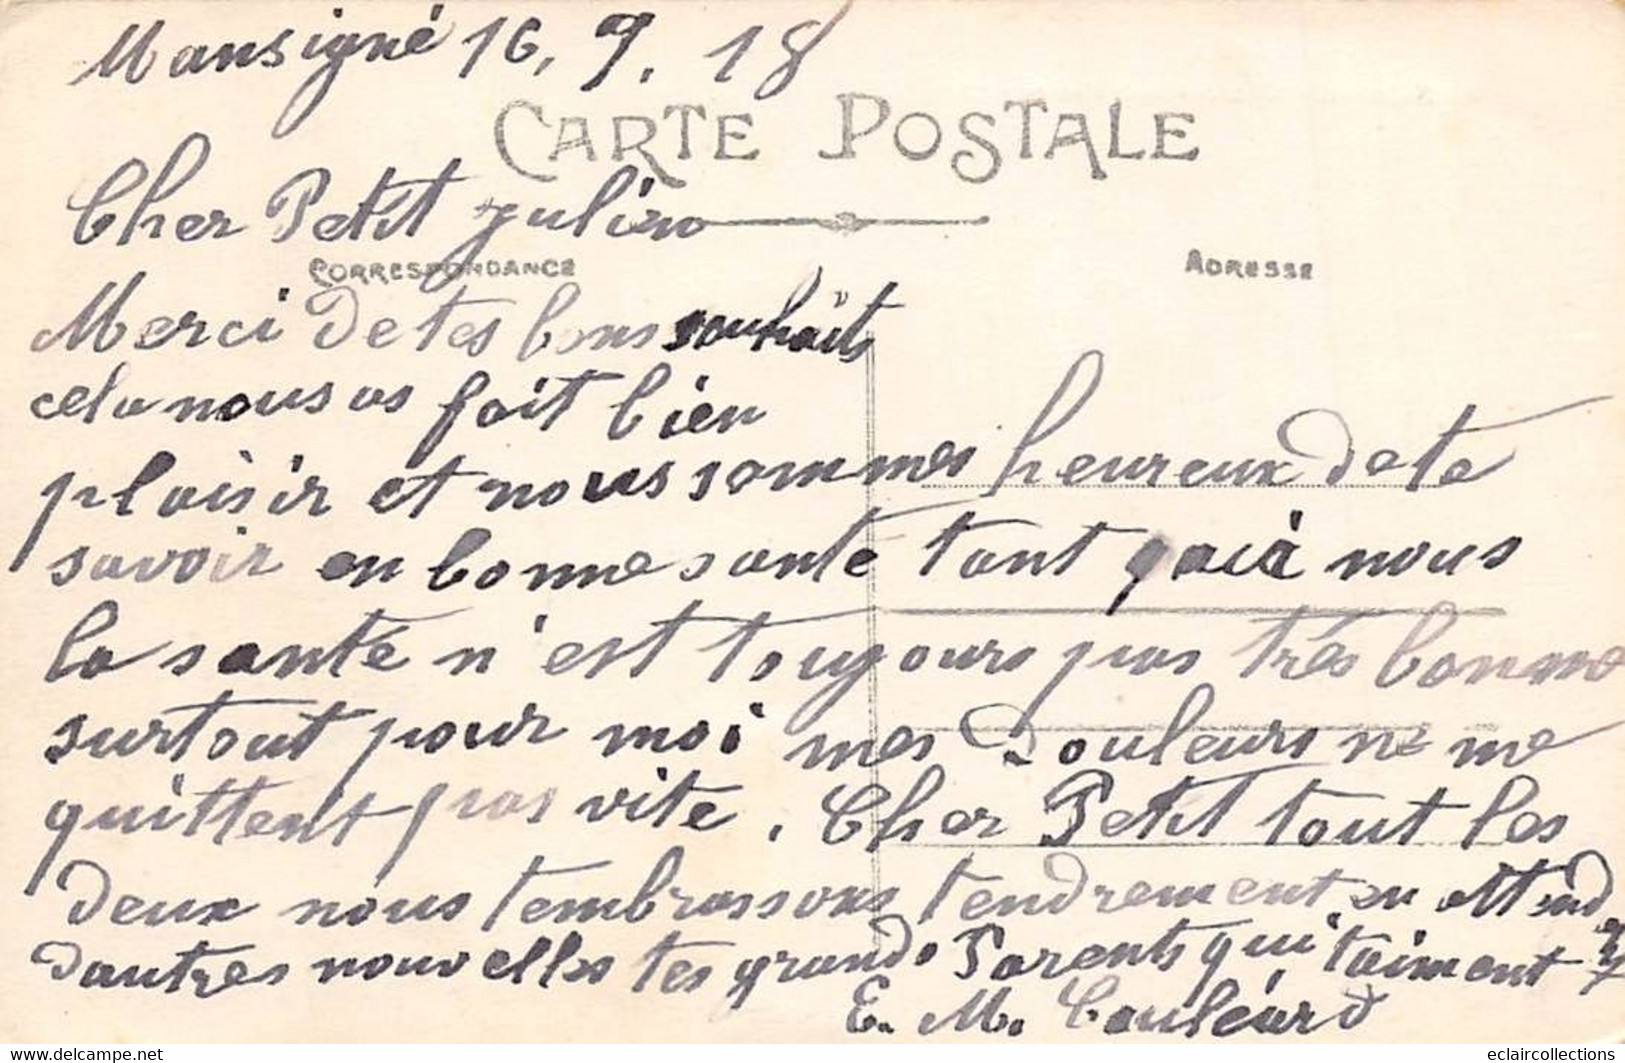 Mansigné 16. 9. 18
CARTE POSTALE
Cher Petit Julien
CORRESPONDANCE
ADRESSE
Merci de tes bons souhaits
cela nous as fait bien
plaisir et nous sommes heureux de te
savoir en bonne santé tant qu'a nous
la santé n'est toujours pas très bonne
surtout pour moi mes douleurs ne me
quittent pas vite. Cher Petit tout les
deux nous t'embrassons tendrement en attend
dautres nouvelles tes grands Parents qui t'aiment
E. M. Couléard
eclaircollections